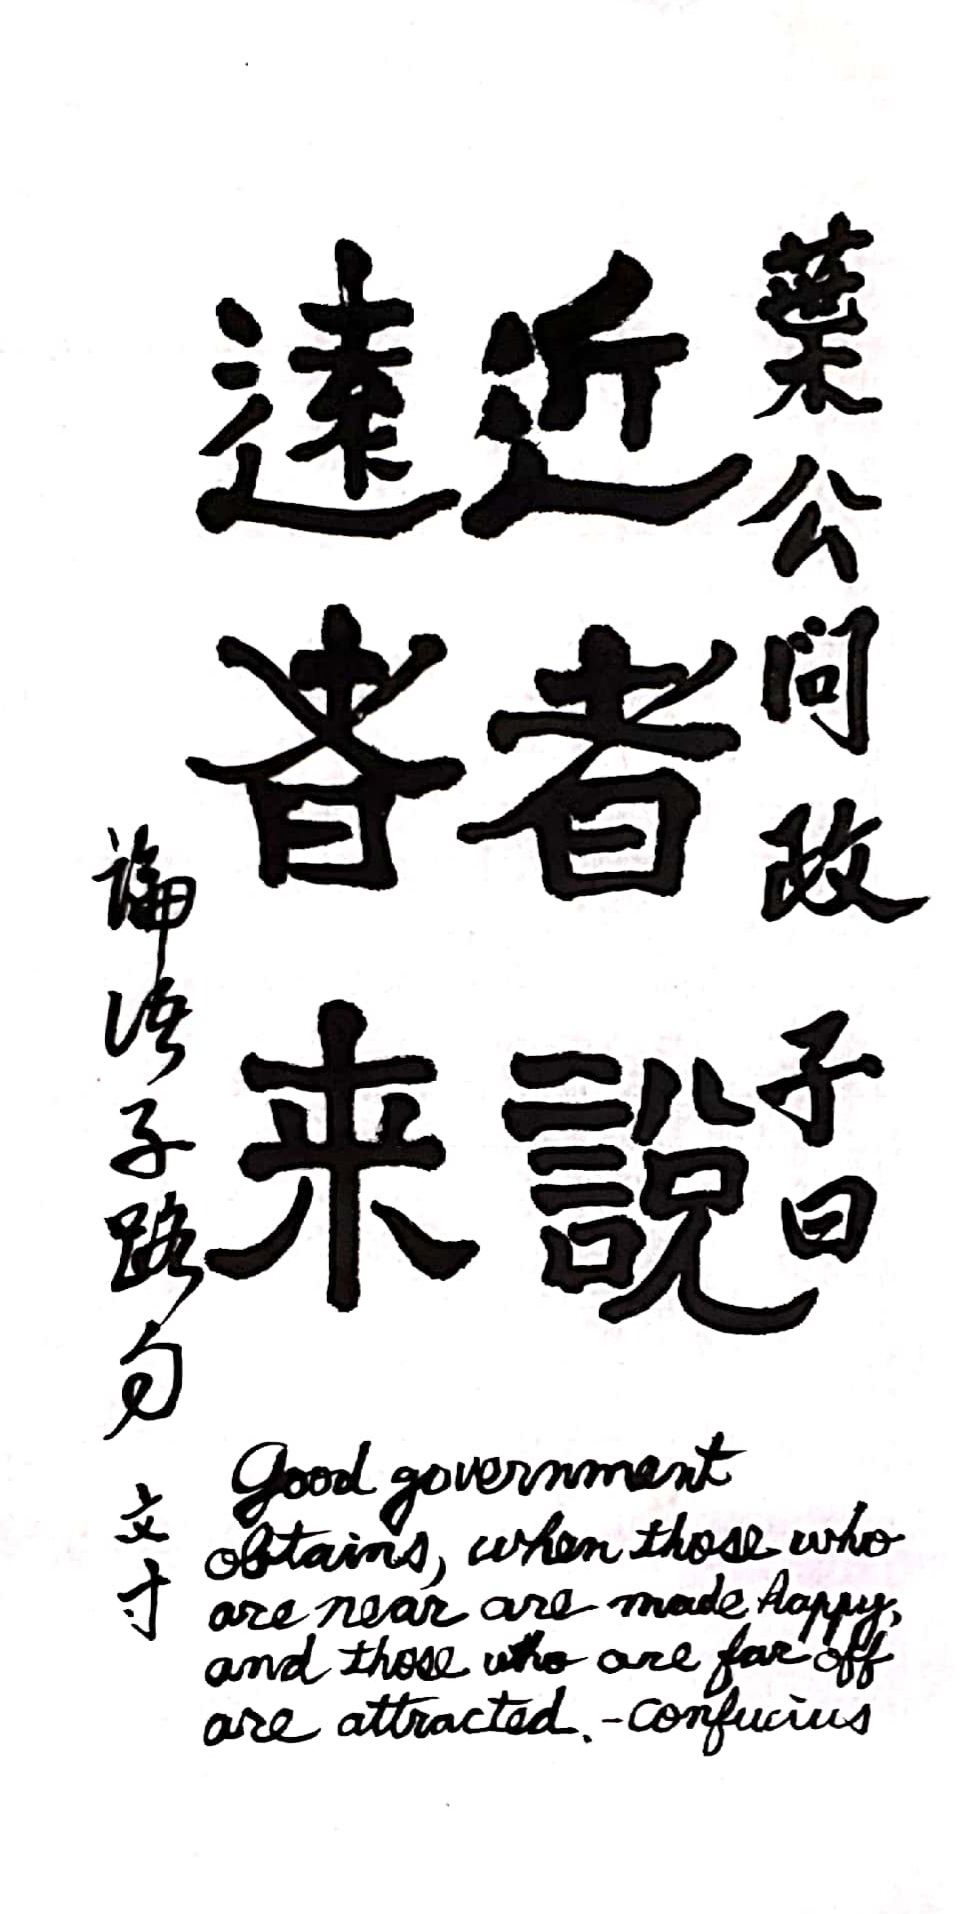 葉公问政子曰
近者說
遠者来
論语子路句
文寸
Good government
obtains, when those who
are near are made happy,
and those who are far off
are attracted. -Confucius